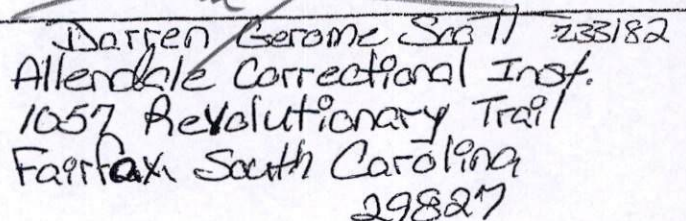 Darren Gerome Scott 233182
Allendale Correctional Inst.
1057 Revolutionary Trail
Fairfax South Carolina
29827